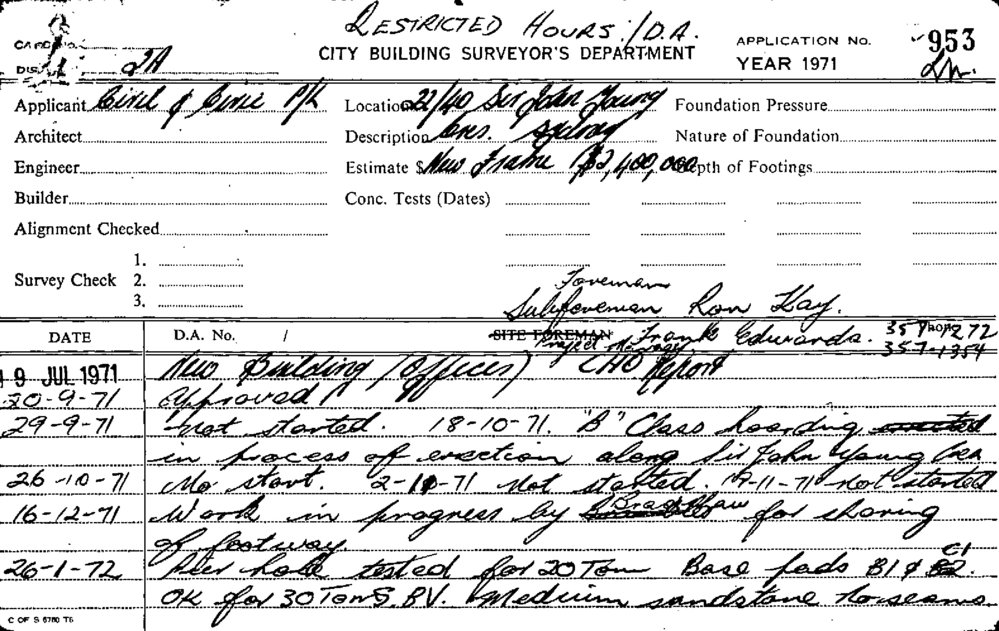 RESTRICTED HOURS./D.A.
CARD No.
CITY BUILDING SURVEYOR'S DEPARTMENT
APPLICATION No. 953
DIS. 2A
YEAR 1971
Applicant Civil & Civic P/L
Location 22/40 Sir John Young
Foundation Pressure
Architect
Description Cres. Sydney
Nature of Foundation
Engineer
Estimate $ New Frame $2,400,000
Depth of Footings
Builder
Conc. Tests (Dates)
Alignment Checked
Survey Check 1.
2.
3.
Foreman
Subforeman Ron Kay.
DATE D.A. No. / SITE FOREMAN Project Manager Frank Edwards. 357 1272
357-1354
19 JUL 1971 New Building (Offices) CHO Report
20-9-71 Approved
29-9-71 Not started. 18-10-71. "B" Class hoarding erected
in process of erection along Sir John Young Cres
26-10-71 No start. 2-11-71 Not started. 9-11-71 not started
16-12-71 Work in progress by Bradshaw for shoring
of footway.
26-1-72 Pier hole tested for 20 Tons Base pads B1 & B2. C1
OK for 30 Tons. BV. Medium sandstone no seams.
C OF S 6780 T6